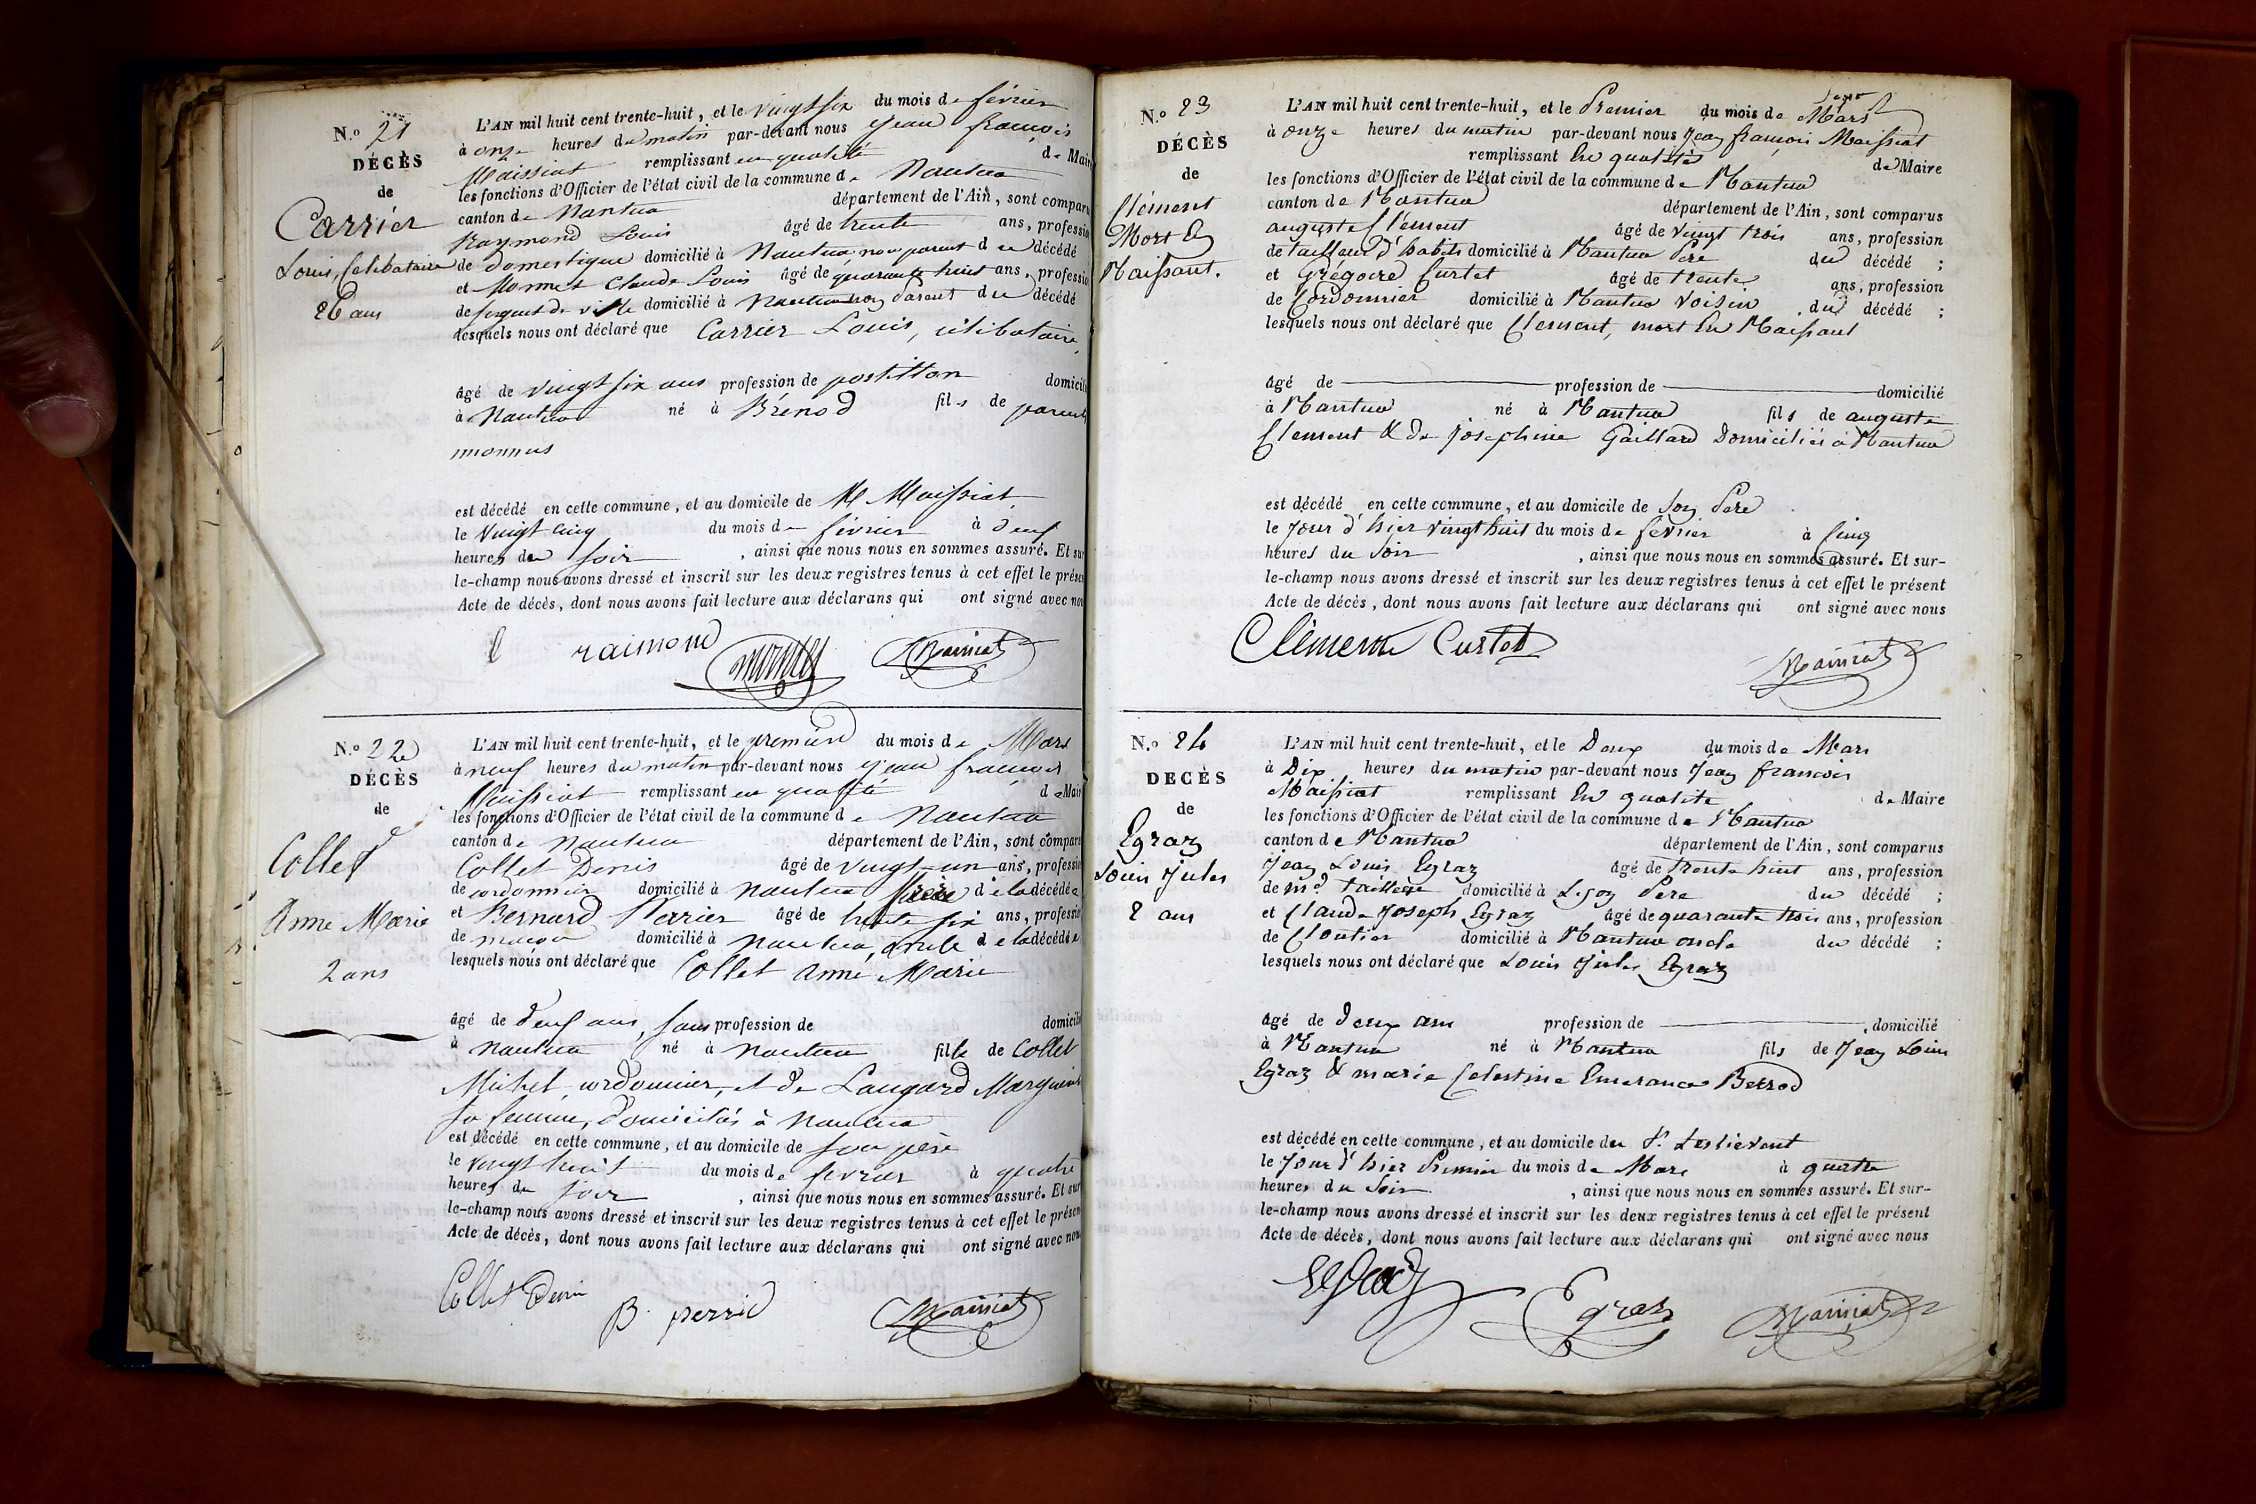 N.º 21
DÉCÈS
de
Carrier
Louis, Celibataire
26 ans
L'AN mil huit cent trente-huit, et le vingt six du mois de février
à onze heures du matin par-devant nous Jean françois
Maissiat remplissant en qualité de Maire
les fonctions d'Officier de l'état civil de la commune de Nantua
canton de Nantua département de l'Ain, sont comparus
Raymond Louis âgé de trente ans, profession
de domestique domicilié à Nantua non parent du décédé
et Monnet Claude Louis âgé de quarante huit ans, profession
de sergent de ville domicilié à Nantua non parent du décédé
lesquels nous ont déclaré que Carrier Louis, célibataire,
âgé de vingt six ans profession de postillon domicilié
à Nantua né à Brénod fils de parents
inconnus
est décédé en cette commune, et au domicile de Mr Maissiat
le vingt cinq du mois de février à neuf
heures du soir, ainsi que nous nous en sommes assuré. Et sur-
le-champ nous avons dressé et inscrit sur les deux registres tenus à cet effet le présent
Acte de décès, dont nous avons fait lecture aux déclarans qui ont signé avec nous
l raimond monnet Maissiat
N.º 22
DÉCÈS
de
Collet
Anne Marie
2 ans
L'AN mil huit cent trente-huit, et le premier du mois de Mars
à neuf heures du matin par-devant nous Jean françois
Maissiat remplissant en qualité de Maire
les fonctions d'Officier de l'état civil de la commune de Nantua
canton de Nantua département de l'Ain, sont comparus
Collet Denis âgé de vingt-un ans, profession
de cordonnier domicilié à Nantua frère de la décédée
et Bernard Perrier âgé de trente six ans, profession
de maçon domicilié à Nantua, oncle de la décédée
lesquels nous ont déclaré que Collet Anne Marie
âgé de deux ans, sans profession de domicilié
à Nantua né à Nantua fille de Collet
Michel, cordonnier, et de Laugard Marguerite
sa femme, domiciliés à Nantua
est décédé en cette commune, et au domicile de son père
le vingt huit du mois de fevrier à quatre
heures du soir, ainsi que nous nous en sommes assuré. Et sur-
le-champ nous avons dressé et inscrit sur les deux registres tenus à cet effet le présent
Acte de décès, dont nous avons fait lecture aux déclarans qui ont signé avec nous
Collet Denis B. perrie Maissiat
N.º 23
DÉCÈS
de
Clément
Mort En
Naissant.
L'AN mil huit cent trente-huit, et le Premier du mois de Mars
à onze heures du matin par-devant nous Jean françois Maissiat
remplissant En qualité de Maire
les fonctions d'Officier de l'état civil de la commune de Nantua
canton de Nantua département de l'Ain, sont comparus
auguste Clément âgé de vingt trois ans, profession
de tailleur d'habits domicilié à Nantua Père du décédé ;
et Grégoire Curtet âgé de trente ans, profession
de Cordonnier domicilié à Nantua Voisin du décédé ;
lesquels nous ont déclaré que Clement, mort En Naissant
âgé de profession de domicilié
à Nantua né à Nantua fils de auguste
Clement & de Josephine Gaillard Domiciliés à Nantua
est décédé en cette commune, et au domicile de son Père
le Jour d'hier vingt huit du mois de fevrier à Cinq
heures du Soir, ainsi que nous nous en sommes assuré. Et sur-
le-champ nous avons dressé et inscrit sur les deux registres tenus à cet effet le présent
Acte de décès, dont nous avons fait lecture aux déclarans qui ont signé avec nous
Clément Curtet
Maissiat
N.º 24
DECÈS
de
Egraz
Louis Jules
2 ans
L'AN mil huit cent trente-huit, et le Deux du mois de Mars
à Dix heures du matin par-devant nous Jean françois
Maissiat remplissant En qualité de Maire
les fonctions d'Officier de l'état civil de la commune de Nantua
canton de Nantua département de l'Ain, sont comparus
Jean Louis Egraz âgé de trente huit ans, profession
de md. domicilié à Lyon Père du décédé ;
et Claude Joseph Egraz âgé de quarante trois ans, profession
de Cloutier domicilié à Nantua oncle du décédé ;
lesquels nous ont déclaré que Louis Jules Egraz
âgé de deux ans profession de domicilié
à Nantua né à Nantua fils de Jean Louis
Egraz & marie Celestine Emerance Berrod
est décédé en cette commune, et au domicile du
le Jour d'hier Premier du mois de Mars à quatre
heures du Soir, ainsi que nous nous en sommes assuré. Et sur-
le-champ nous avons dressé et inscrit sur les deux registres tenus à cet effet le présent
Acte de décès, dont nous avons fait lecture aux déclarans qui ont signé avec nous
Egraz Egraz Maissiat